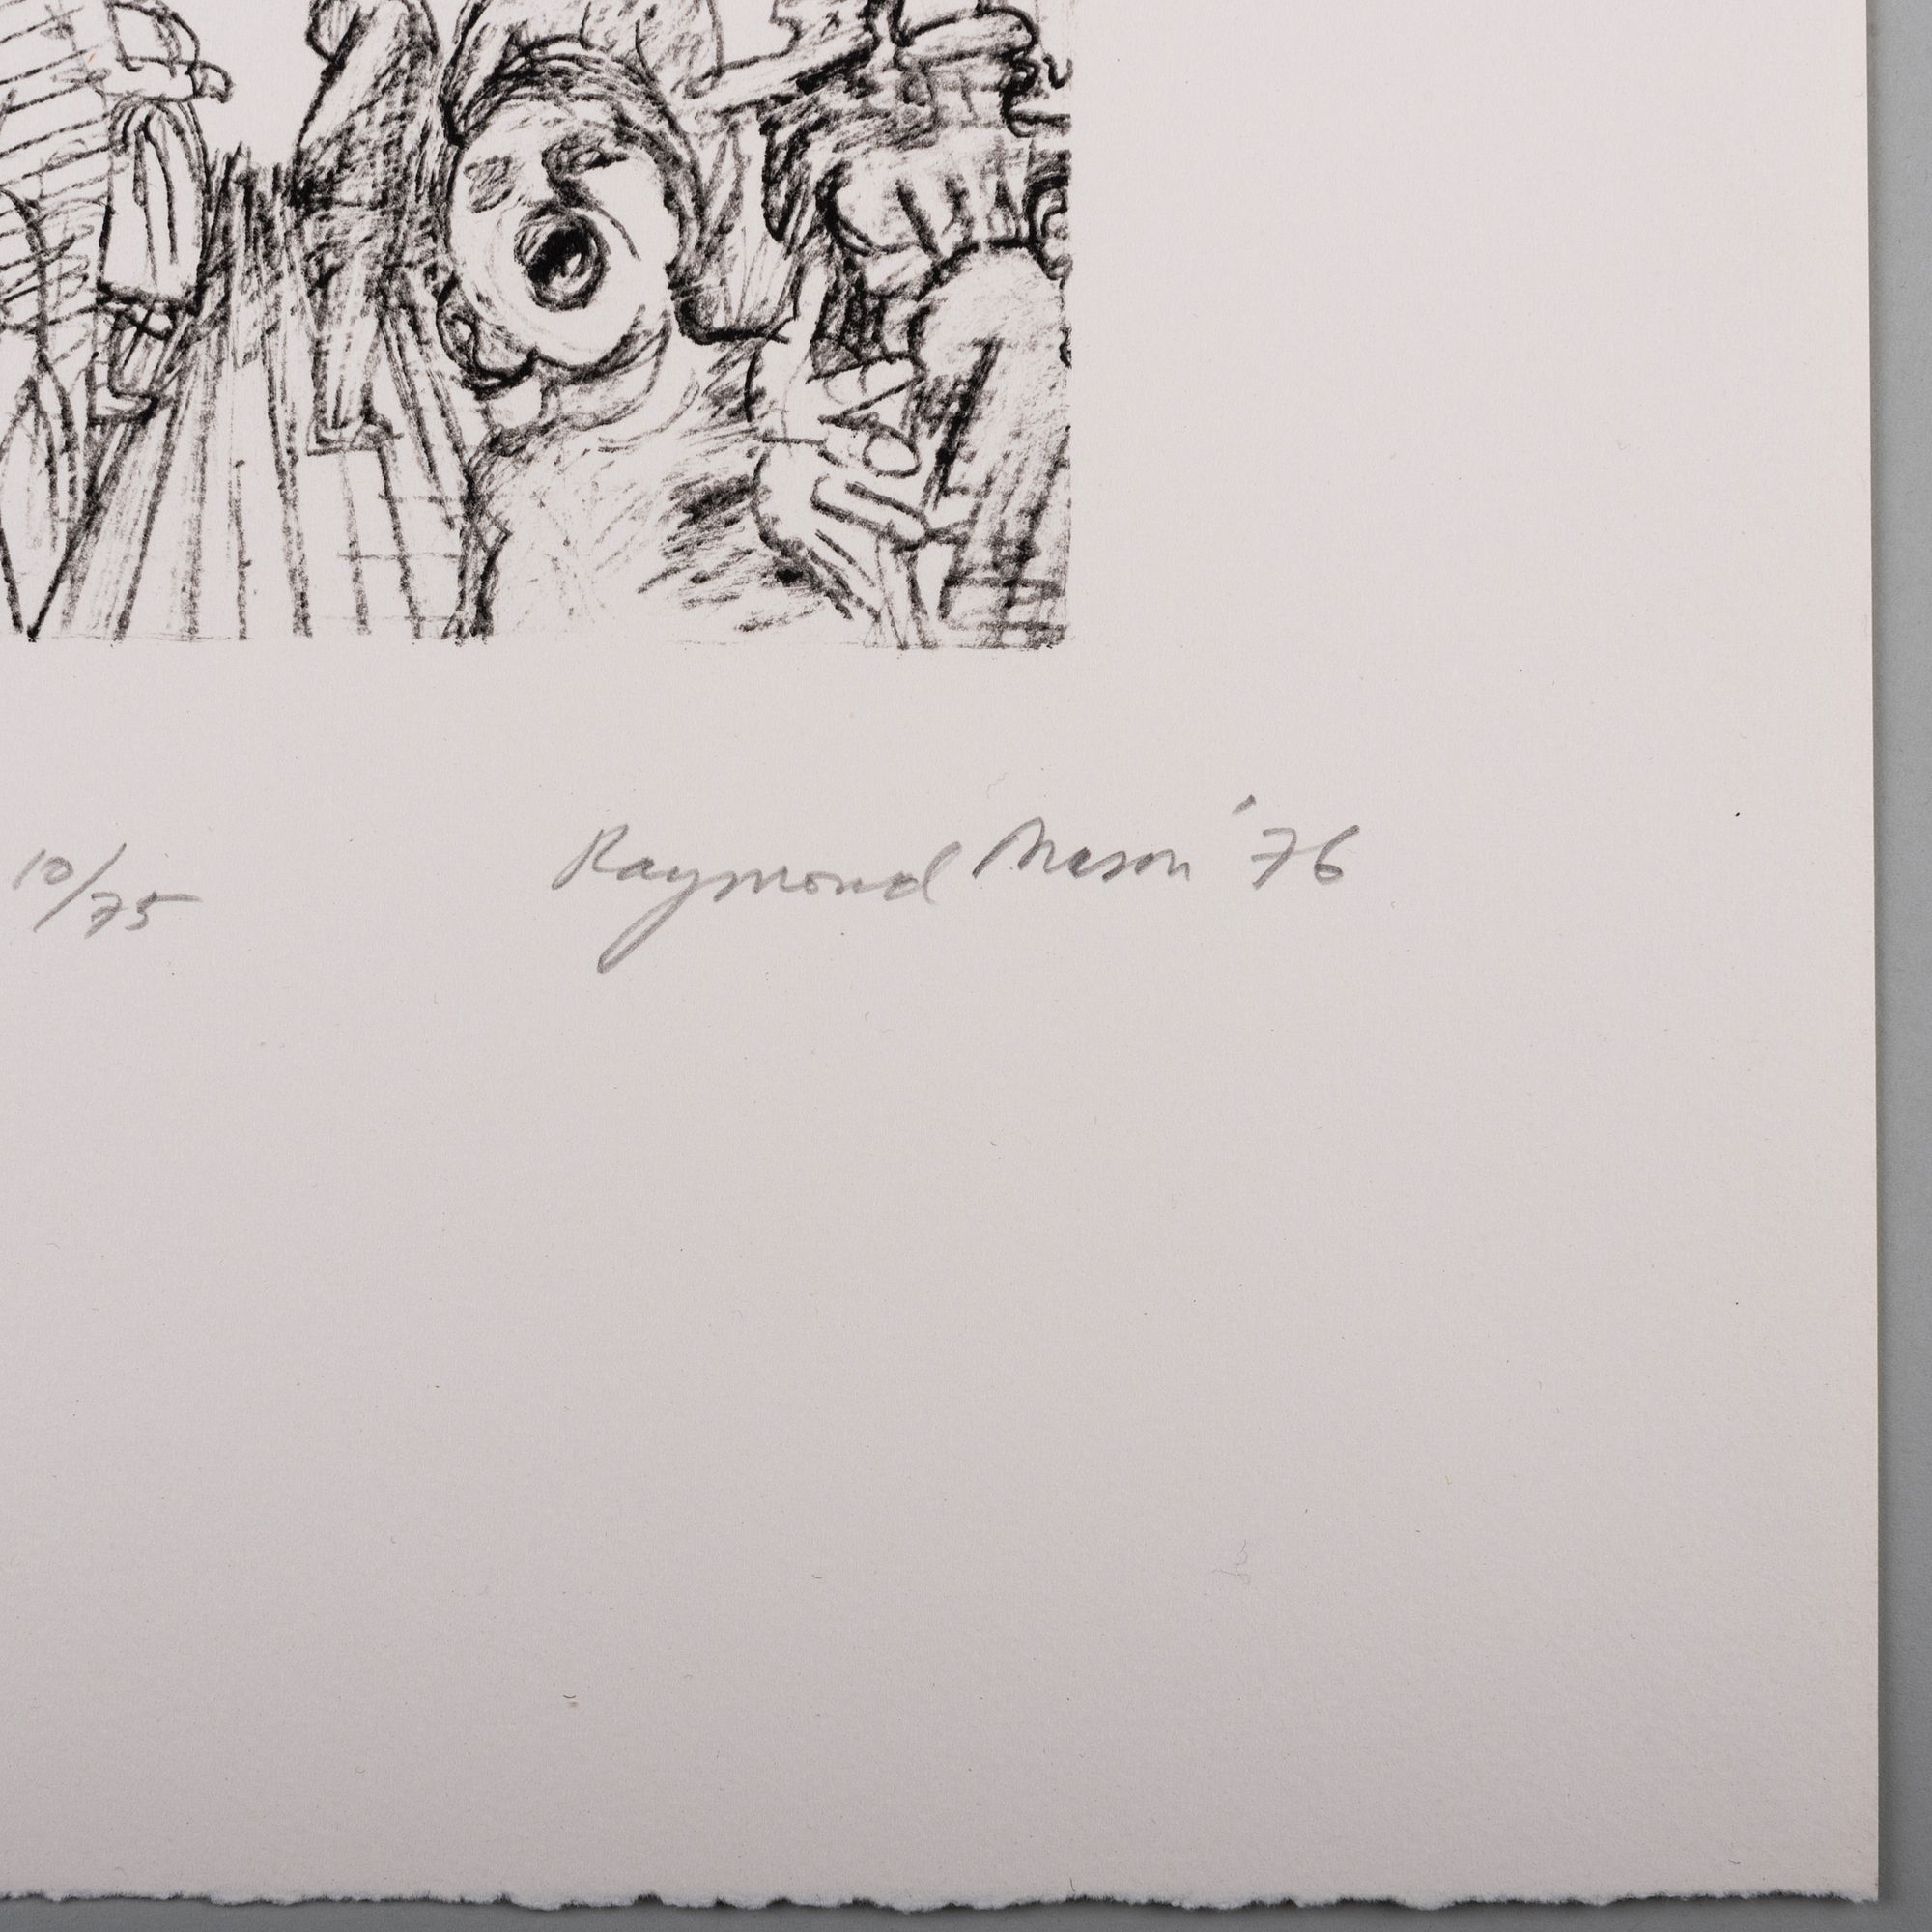 10/75
Raymond Mason '76